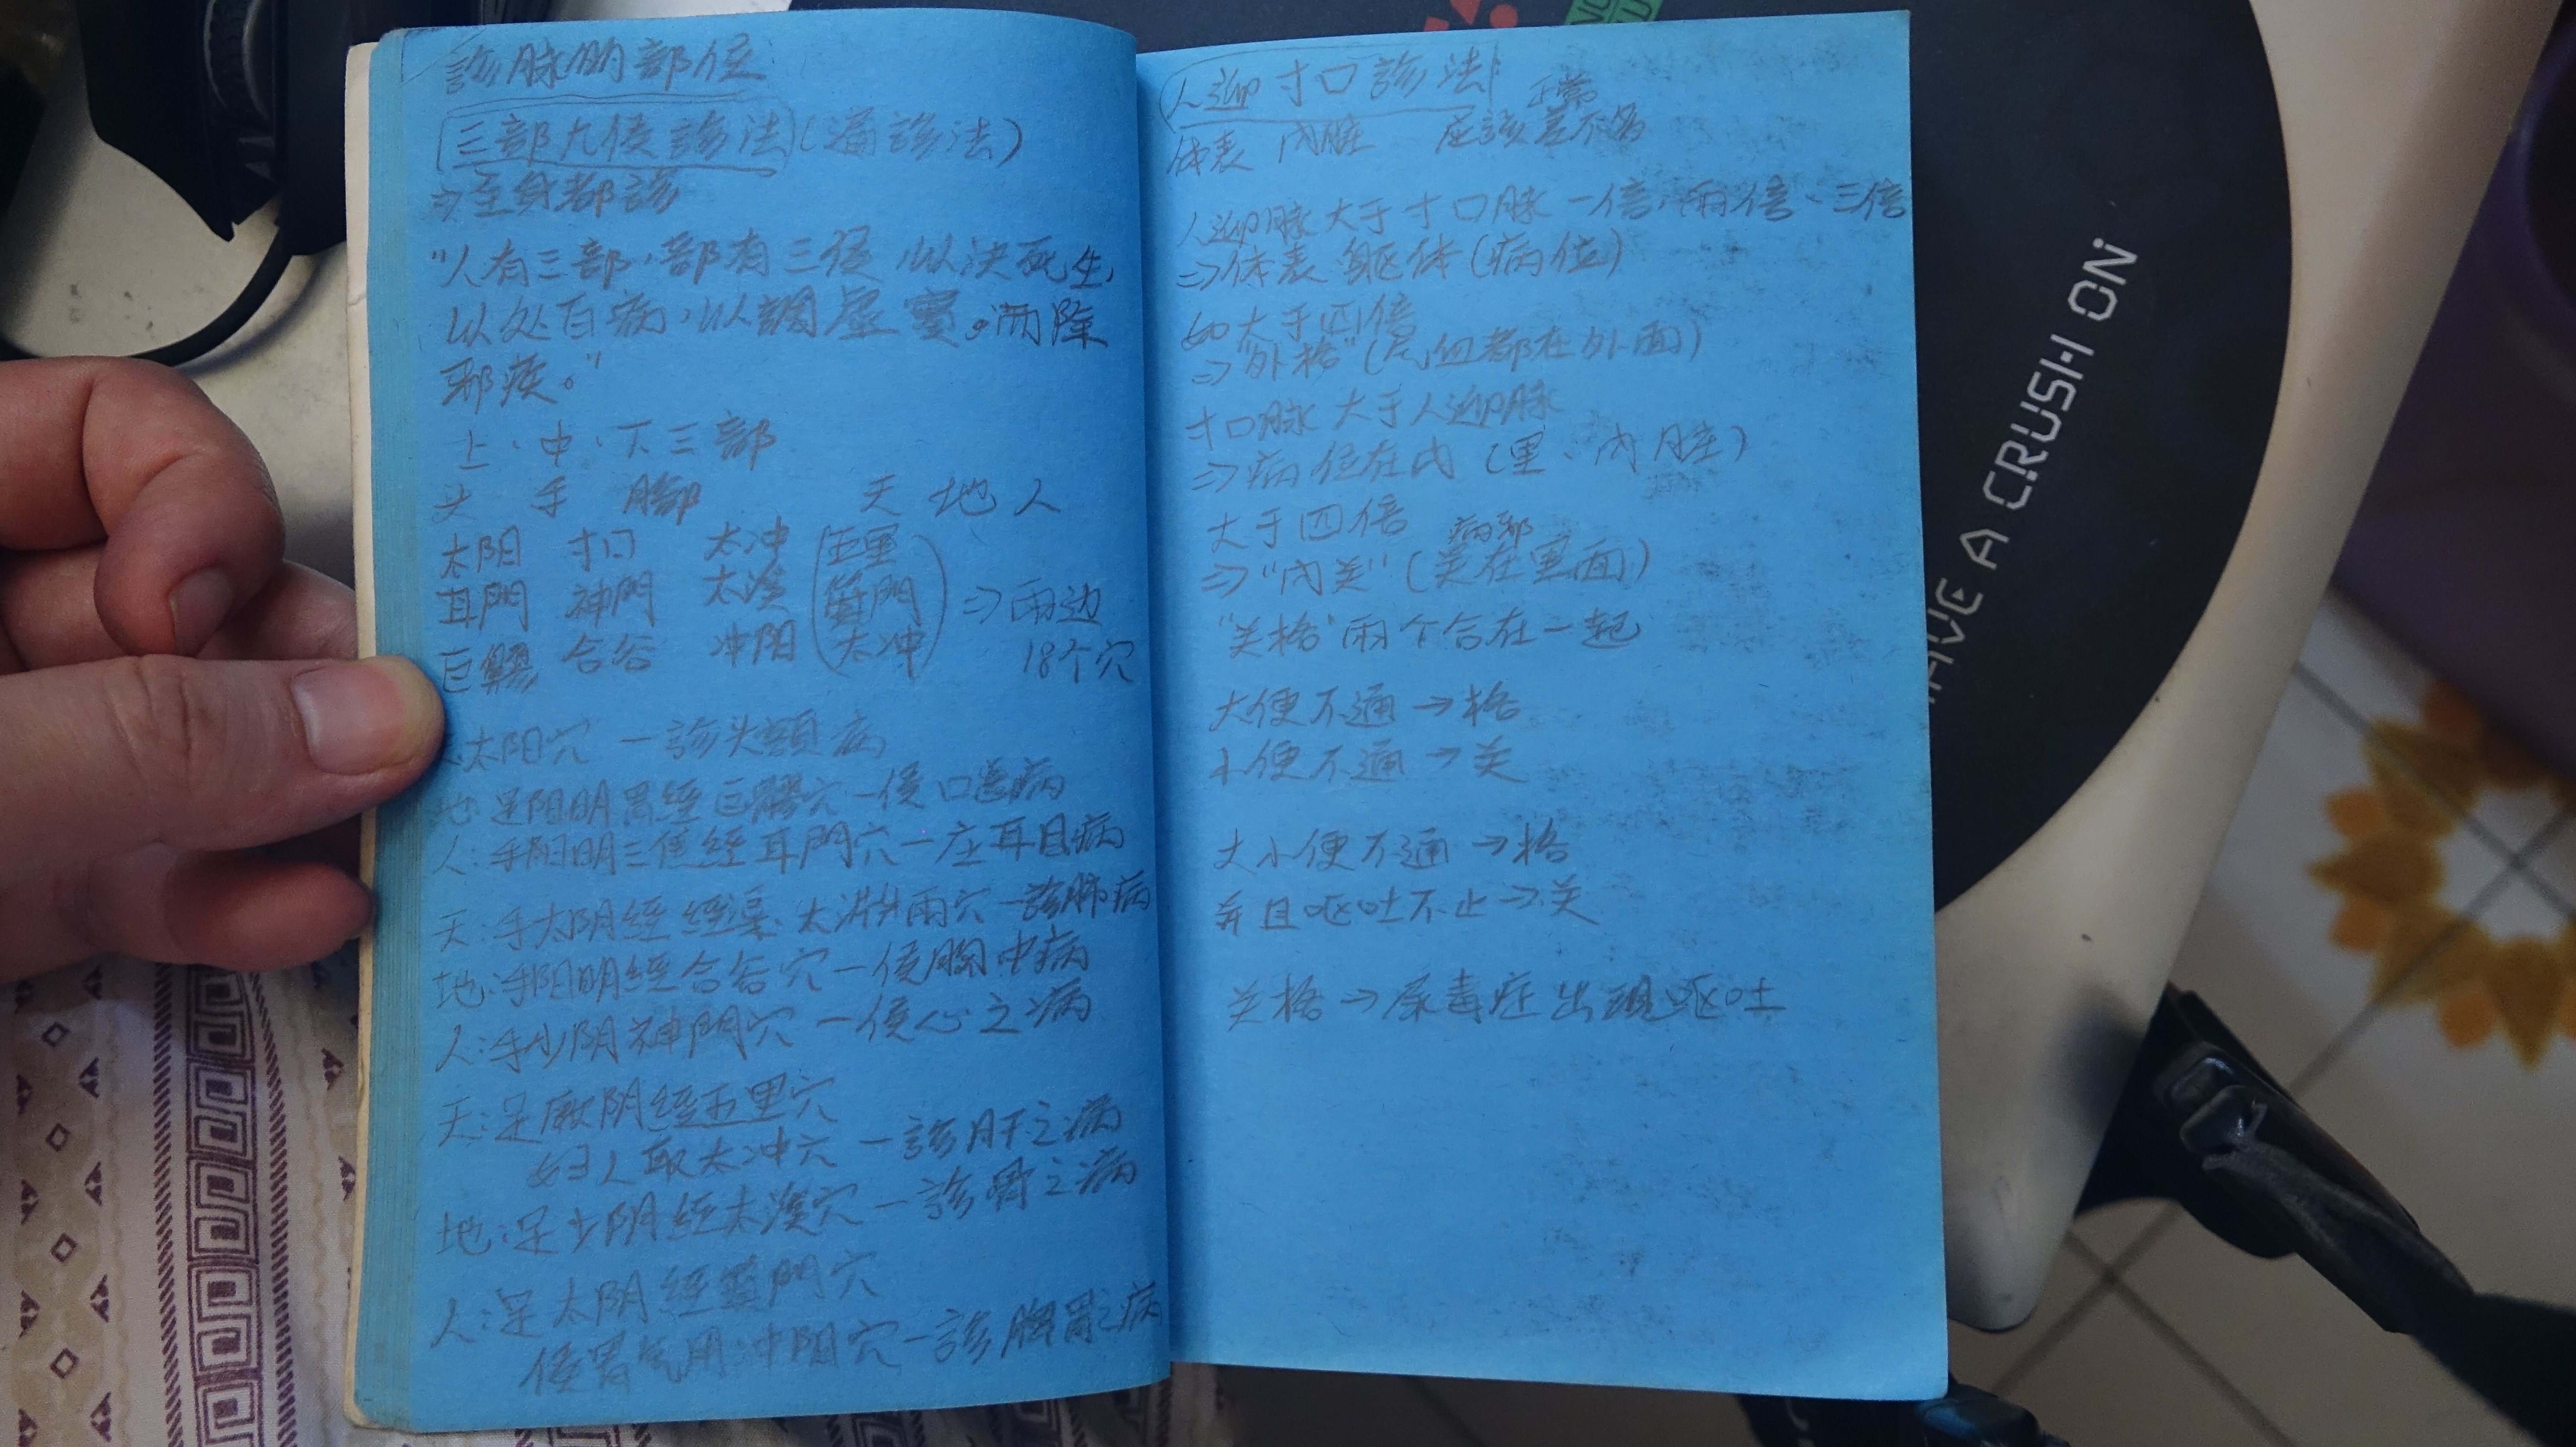 診脉的部位
三部九候診法(遍診法)
⇒全身都診
"人有三部,部有三候,以决死生,
以处百病,以調虚實。而除
邪疾。"
上、中、下三部
头 手 脚 天 地 人
太阳 寸口 太冲 五里
耳門 神門 太溪 箕門 ⇒兩边
巨髎 合谷 冲阳 太冲 18个穴
太阳穴 — 診头頭病
地:足阳明胃經巨髎穴—候口齒病
人:手阳明三焦經耳門穴—庄耳目病
天:手太阴經經渠、太渊兩穴—診肺病
地:手阳明經合谷穴—候胸中病
人:手少阴神門穴—候心之病
天:足厥阴經五里穴
妇人取太冲穴—診肝之病
地:足少阴經太溪穴—診腎之病
人:足太阴經箕門穴
候胃气用冲阳穴—診脾胃之病
人迎寸口診法
正常
体表 内脏 应該差不多
人迎脉大于寸口脉一倍、兩倍、三倍
⇒体表 躯体(病位)
如大于四倍
⇒"外格"(气血都在外面)
寸口脉大于人迎脉
⇒病位在内(里、内脏)
大于四倍 病邪
⇒"内关"(关在里面)
"关格"兩个合在一起
大便不通→格
小便不通→关
大小便不通→格
并且呕吐不止→关
关格→尿毒症出現呕吐
HAVE A CRUSH ON